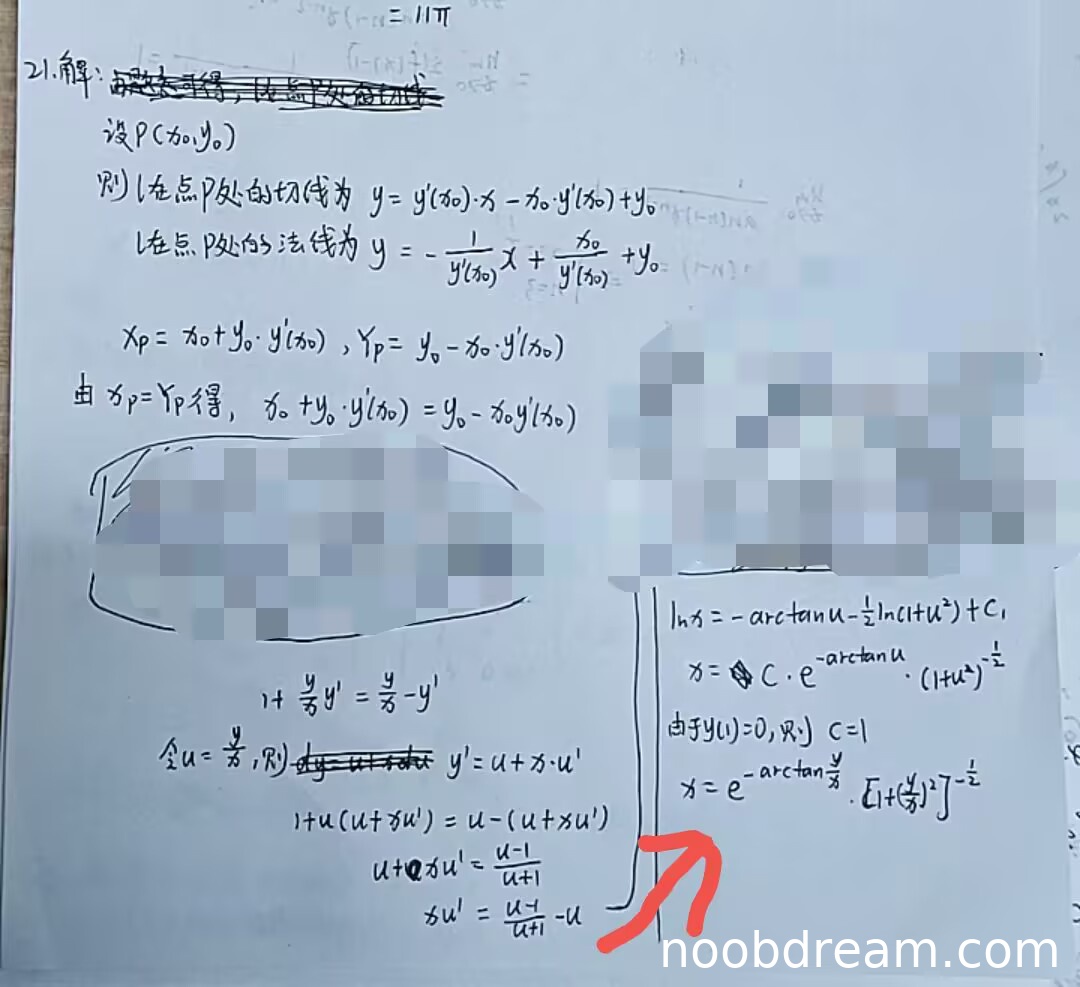 = 11π
21.解:
设P(x₀,y₀)
则 l在点P处的切线为 y = y'(x₀)·x - x₀·y'(x₀)+y₀
l在点P处的法线为 y = -\frac{1}{y'(x₀)}x + \frac{x₀}{y'(x₀)} + y₀
X_P = x₀+y₀·y'(x₀), Y_P = y₀ - x₀·y'(x₀)
由 x_P=Y_P得, x₀+y₀·y'(x₀) = y₀ - x₀y'(x₀)
1+\frac{y}{x}y' = \frac{y}{x}-y'
令u=\frac{y}{x},则 y'=u+x·u'
1+u(u+xu') = u-(u+xu')
u+xu' = \frac{u-1}{u+1}
xu' = \frac{u-1}{u+1}-u
lnx = -arctanu-\frac{1}{2}ln(1+u²)+C₁
x = C·e^{-arctanu}·(1+u²)^{-\frac{1}{2}}
由于y(1)=0,则 C=1
x = e^{-arctan\frac{y}{x}}·[1+(\frac{y}{x})²]^{-\frac{1}{2}}
noobdream.com